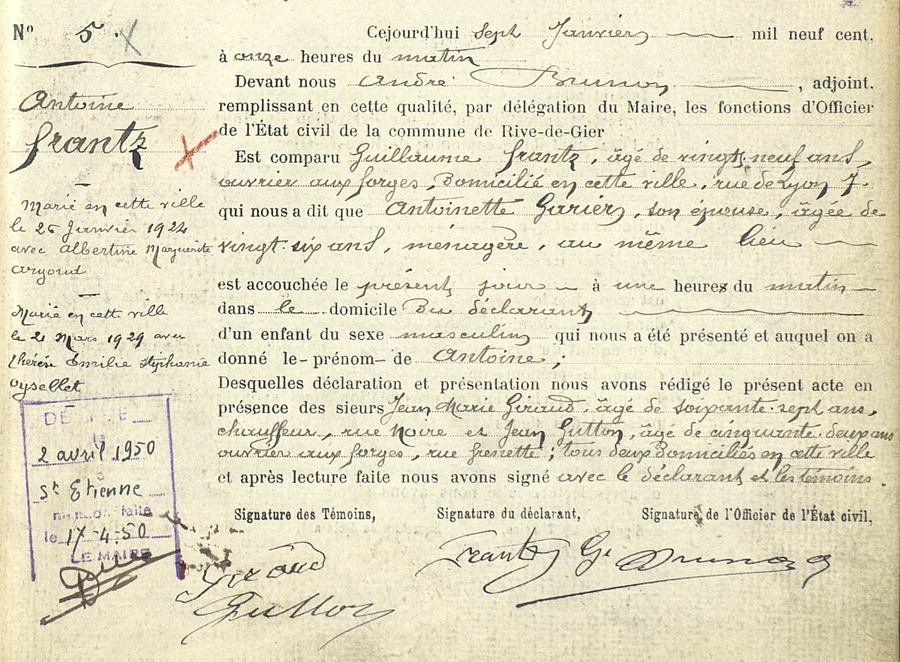 N° 5.
Antoine
Frantz
Marié en cette ville
le 26 Janvier 1924
avec Albertine Marguerite
Argoud
Marié en cette ville
le 21 Mars 1929 avec
Thérèse Emilie Stéphanie
Oysellet
DÉCÉDÉ
2 avril 1950
à
St Etienne
mention faite
le 17-4-50
LE MAIRE
Cejourd'hui sept Janvier mil neuf cent,
à onze heures du matin
Devant nous André Brunon, adjoint.
remplissant en cette qualité, par délégation du Maire, les fonctions d'Officier
de l'État civil de la commune de Rive-de-Gier
Est comparu Guillaume Frantz, âgé de vingt-neuf ans,
ouvrier aux forges, Domicilié en cette ville, rue de Lyon 7.
qui nous a dit que Antoinette Garier, son épouse, âgée de
vingt-six ans, ménagère, au même lieu
est accouchée le présent jour à une heures du matin
dans le domicile Du déclarant
d'un enfant du sexe masculin qui nous a été présenté et auquel on a
donné le-prénom-de Antoine;
Desquelles déclaration et présentation nous avons rédigé le présent acte en
présence des sieurs Jean Marie Giraud, âgé de soixante-sept ans,
chauffeur, rue Noire et Jean Gutton, âgé de cinquante-deux ans
ouvrier aux forges, rue Grenette; tous deux Domiciliés en cette ville
et après lecture faite nous avons signé avec le déclarant et les témoins.
Signature des Témoins, Signature du déclarant, Signature de l'Officier de l'État civil,
Giraud Frantz Ge Brunon
Gutton